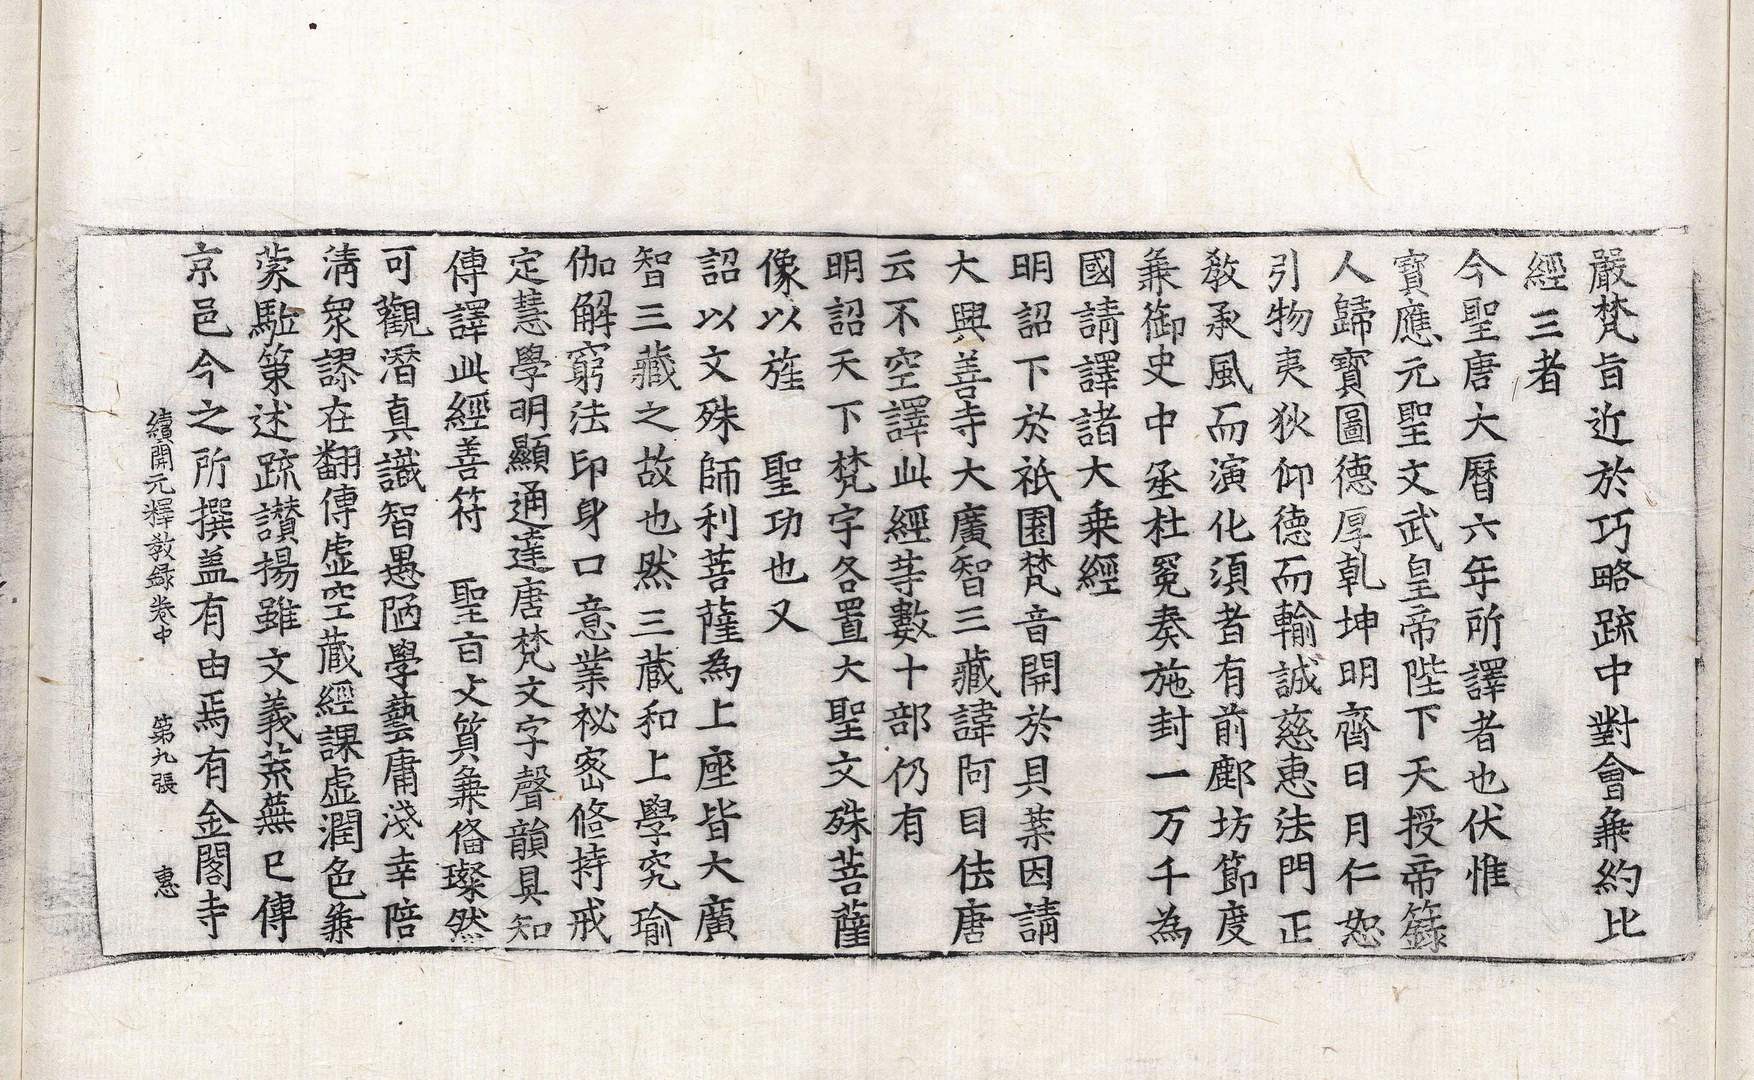 嚴梵旨近於巧略疏中對會兼約比
經三者
今聖唐大曆六年所譯者也伏惟
寳應元聖文武皇帝陛下天授帝籙
人歸寳圖德厚乹坤明齊日月仁恕
引物夷狄仰德而輸誠慈惠法門正
敎承風而演化須者有前鄜坊節度
兼御史中丞杜冕奏施封一万千為
國請譯諸大乗經
明詔下於祇園梵音開於貝葉因請
大興善寺大廣智三藏諱阿目佉唐
云不空譯此經等數十部仍有
明詔天下梵宇各置大聖文殊菩薩
像以旌　聖功也又
詔以文殊師利菩薩為上座皆大廣
智三藏之故也然三藏和上學究瑜
伽解窮法印身口意業祕宻修持戒
定慧學明顯通達唐梵文字聲韻具知
傳譯此經善符　聖旨文質兼偹璨然
可觀潛真識智愚陋學藝庸淺幸陪
清衆謬在翻傳虛空藏經課虛潤色兼
蒙駈策述疏讃揚雖文義荒蕪已傳
京邑今之所撰盖有由焉有金閣寺
續開元釋教録卷中　第九張　惠